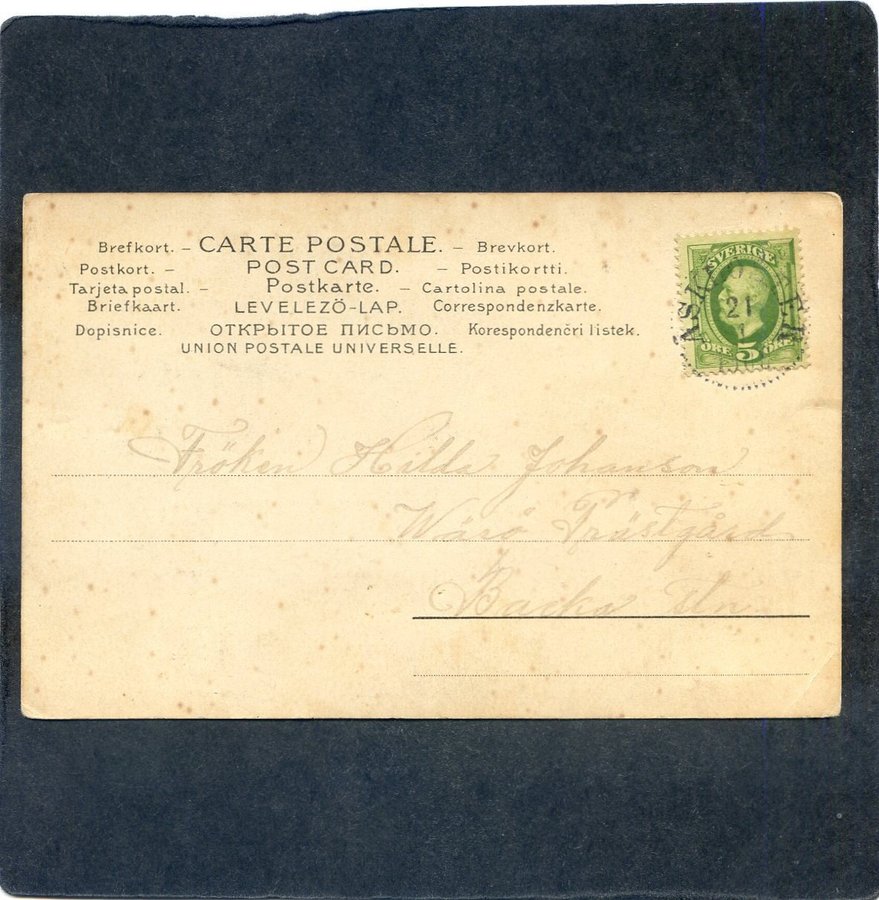 Brefkort. – CARTE POSTALE. – Brevkort.
Postkort. – POST CARD. – Postikortti.
Tarjeta postal. – Postkarte. – Cartolina postale.
Briefkaart. LEVELEZÖ-LAP. Correspondenzkarte.
Dopisnice. ОТКРЫТОЕ ПИСЬМО. Korespondenčrí listek.
UNION POSTALE UNIVERSELLE.
SVERIGE
21
1
5
ÖRE
Fröken Hilda Johanson
Wärö Prästgård
Backa Stn